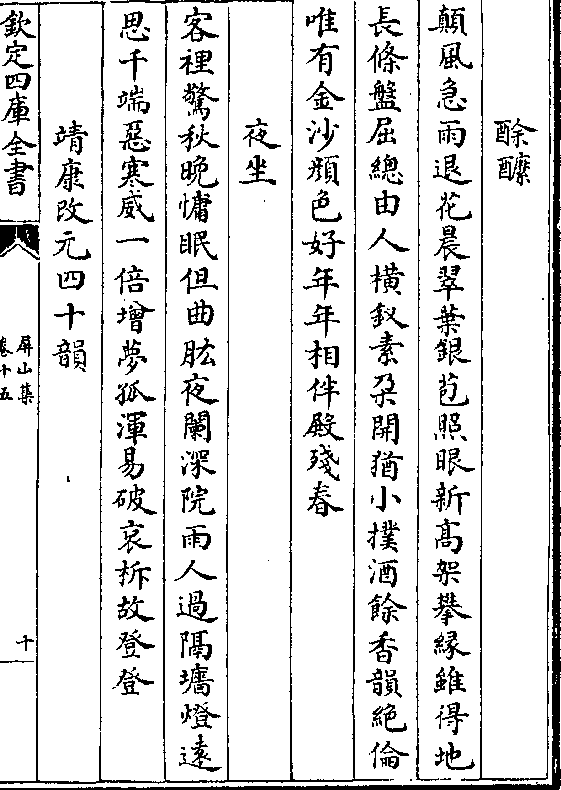 酴醾
顛風急雨退花晨翠葉銀苞照眼新高架攀縁雖得地
長條盤屈總由人橫釵素朶開猶小撲酒餘香韻絶倫
唯有金沙顔色好年年相伴殿殘春
夜坐
客裡驚秋晚慵眠但曲肱夜闌深院雨人過隔墻燈遠
思千端惡寒威一倍增夢孤渾易破哀柝故登登
靖康改元四十韻
欽定四庫全書
屏山集
卷十五
十